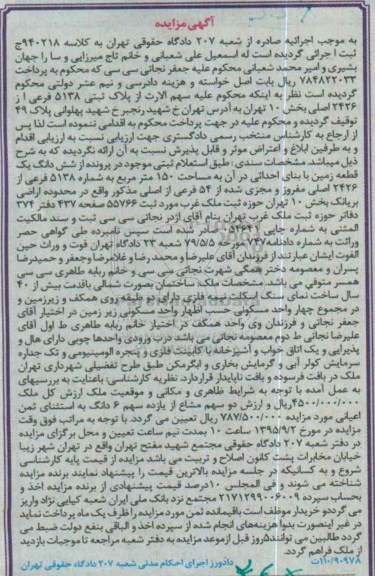 آگهی مزایده
به موجب اجرائیه صادره از شعبه ۲۰۷ دادگاه حقوقی تهران به کلاسه ۹۴۰۲۱۸ج
ثبت اجرائی گردیده است له اسمعیل علی شعبانی و خانم تاج میرزایی و سارا جهان
بشیری و امیر محمد شعبانی محکوم علیه جعفر نجاتی سی سی که محکوم به پرداخت
۷۸۴۸۲۲۰۳۳ ریال بابت اصل خواسته و هزینه دادرسی و نیم عشر دولتی محکوم
گردیده است نظر به اینکه محکوم علیه سهم الارث از پلاک ثبتی ۵۱۳۸ فرعی از
۲۴۲۶ اصلی بخش ۱۰ تهران به آدرس تهران خ شهید رنجبر خ شهید پهلوانی پلاک ۴۹
توقیف گردیده و محکوم علیه در جهت پرداخت محکوم به اقدامی ننموده است لذا پس
از ارجاع به کارشناس منتخب رسمی دادگستری جهت ارزیابی نسبت به ارزیابی اقدام
و به طرفین ابلاغ و اعتراض موثر و قابل پذیرش نسبت به آن ارائه نگردیده که به شرح
ذیل میباشد مشخصات سندی: طبق استعلام ثبتی موجود در پرونده از شش دانگ یک
قطعه زمین با بنای احداثی در آن به مساحت ۱۵۰ متر مربع به شماره ۵۱۳۸ فرعی از
۲۴۲۶ اصلی مفروز و مجزی شده از ۵۴ فرعی از اصلی مذکور واقع در محدوده اراضی
بریانک بخش ۱۰ تهران حوزه ثبت ملک غرب مورد ثبت ۵۵۷۶۶ صفحه ۴۳۷ دفتر ۳۷۴
دفاتر حوزه ثبت ملک غرب تهران بنام آقای اژدر نجاتی سی سی ثبت و سند مالکیت
المثنی به شماره چاپی صادر شده است سپس نامبرده طی گواهی حصر
وراثت به شماره دادنامه ۷۴۷ مورخه ۷۹/۵/۵ شعبه ۲۳ دادگاه تهران فوت و وراث حین
الفوت ایشان عبارتند از فرزندان آقای علیرضا و محمد رضا و غلامرضا و جعفر و حمیدرضا
پسران و معصومه دختر همگی شهرت نجاتی سی سی و خانم ربابه طاهری سی سی
همسر متوفی می باشد. مشخصات ملک: ساختمان بصورت شمالی باقدمت بیش از ۴۰
سال ساخت نمای سنگ اسکلت نیمه فلزی دارای دو طبقه روی همکف و زیرزمین و
در مجموع چهار واحد مسکونی حسب اظهار واحد مسکونی زیر زمین در اختیار آقای
جعفر نجاتی و فرزندان وی واحد همکف در اختیار خانم ربابه طاهری ط اول آقای
علیرضا نجاتی ط دوم معصومه نجاتی می باشد درب ورودی واحدها چوبی دارای هال و
پذیرایی و یک اتاق خواب و آشپزخانه با کابینت فلزی و پنجره الومینیومی و تک جداره
سرمایش کولر آبی و گرمایش بخاری و ابگرمکن طبق طرح تفصیلی شهرداری تهران
ملک در بافت فرسوده و بافت ناپایدار قراردارد. نظریه کارشناسی: باعنایت به بررسیهای
به عمل آمده با توجه به شرایط ظاهری و مکانی و موقعیت ملک ارزش کل ملک
۴۵۰۰/۰۰۰/۰۰۰ ریال و ارزش دو سهم مشاع از یازده سهم ۶ دانگ به استثنای ثمن
اعیانی مورد مزایده ۷۸۷/۵۰۰/۰۰۰ ریال تعیین می گردد. با توجه به مراتب فوق وقت
مزایده در مورخ ۱۳۹۵/۹/۲ ساعت ۱۰ بمدت نیم ساعت تعیین و محل برگزای مزایده
در دفتر شعبه ۲۰۷ دادگاه حقوقی مجتمع شهید مفتح تهران واقع در تهران شهر زیبا
خیابان مخابرات پشت کانون اصلاح و تربیت می باشد مزایده از قیمت پایه کارشناسی
شروع و به کسانیکه در جلسه مزایده بالاترین قیمت را پیشنهاد نمایند برنده مزایده
شناخته می شوند و فی المجلس ۱۰درصد قیمت پیشنهادی از برنده مزایده اخذ و
بحساب سپرده ۲۱۷۱۲۹۹۰۰۶۰۰۹ مجتمع نزد بانک ملی ایران شعبه کیایی نژاد واریز
می گرددو خریدار موظف است باقیمانده ثمن مورد مزایده را ظرف یک ماه پرداخت نماید
در غیر اینصورت بدوا هزینه‌های انجام شده از سپرده اخذ و الباقی بنفع دولت ضبط می
گردد طالبین می توانند۵روز قبل از موعد مزایده به دفتر شعبه مراجعه تا موجبات بازدید
از ملک فراهم گردد.
۱۱۰/۹۰۹۷۸ت دادورز اجرای احکام مدنی شعبه ۲۰۷ دادگاه حقوقی تهران